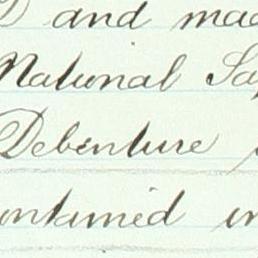 and mad
National
Debenture
ontained in